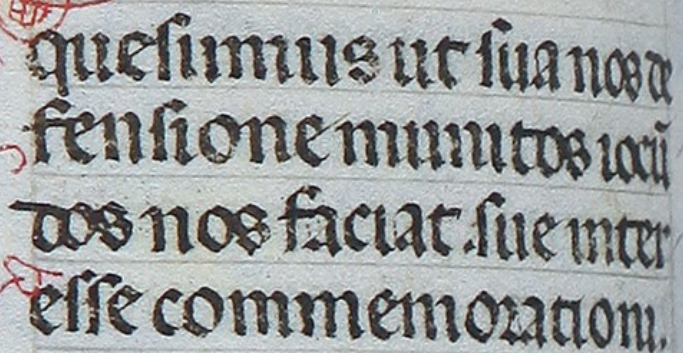 quesumus ut sua nos de
fensione munitos iocū
dos nos faciat sue inter
esse commemorationi.